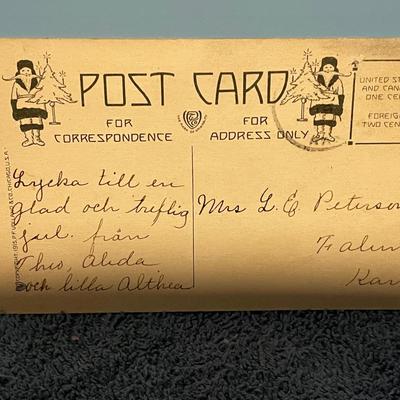 POST CARD
FOR CORRESPONDENCE
FOR ADDRESS ONLY
UNITED ST
AND CANA
ONE CEN
FOREIG
TWO CEN
Lycka till en
glad och treflig
jul. från
Theo, Alida
och lilla Althea
Mrs L. E. Peterson
Falun
Kan